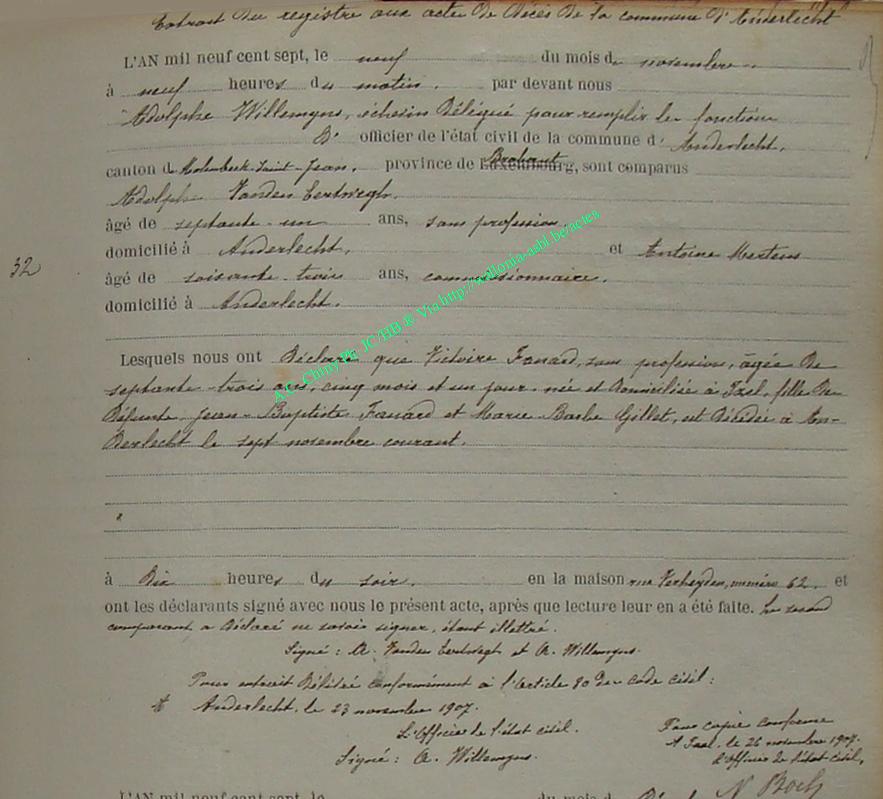 Extrait du registre aux actes de décès de la commune d'Anderlecht
L'AN mil neuf cent sept, le neuf du mois de novembre
à neuf heures du matin. par devant nous
Adolphe Willemyns, échevin délégué pour remplir les fonctions
d' officier de l'état civil de la commune d' Anderlecht,
canton de Molenbeek-Saint-Jean, province de Luxembourg, Brabant sont comparus
Adolphe Vanden Eertwegh.
âgé de septante-un ans, sans profession.
domicilié à Anderlecht. et Antoine Mertens
32
âgé de soixante-trois ans, commissionnaire.
domicilié à Anderlecht.
A.C. Chiny Ph. JC/BB & Via http://wallonia-asbl.be/actes
Lesquels nous ont déclaré que Victoire Fanard, sans profession, âgée de
septante-trois ans, cinq mois et un jour, née et domiciliée à Izel, fille de
défunts Jean-Baptiste Fanard et Marie Barbe Gillet, est décédée à An-
derlecht le sept novembre courant.
à dix heures du soir. en la maison rue Verheyden, numéro 62. et
ont les déclarants signé avec nous le présent acte, après que lecture leur en a été faite. Le second
comparant a déclaré ne savoir signer, étant illettré.
Signé : A. Vanden Eertwegh et A. Willemyns.
Pour extrait délivré conformément à l'article 80 du code civil :
Anderlecht, le 23 novembre 1907.
L'Officier de l'état civil.
Signé : A. Willemyns.
Pour copie conforme
A Izel, le 26 novembre 1907.
L'Officier de l'état civil,
N Boch
L'AN mil neuf cent sept, le du mois d